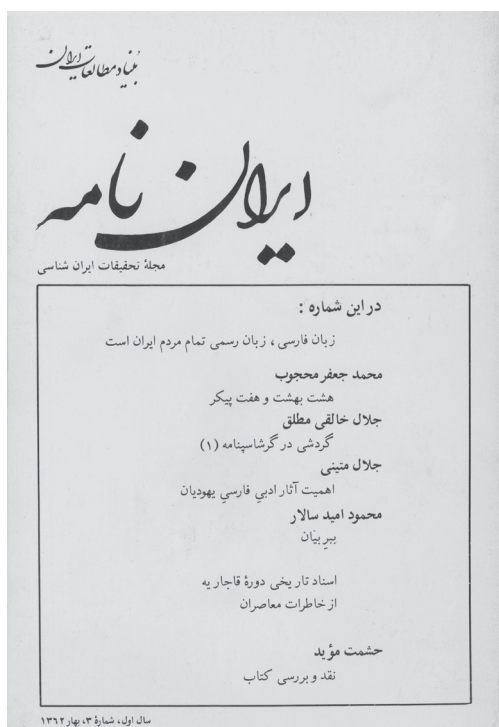 بنیاد مطالعات ایران
ایران نامه
مجلهٔ تحقیقات ایران شناسی
در این شماره :
زبان فارسی ، زبان رسمی تمام مردم ایران است
محمد جعفر محجوب
هشت بهشت و هفت پیکر
جلال خالقی مطلق
گردشی در گرشاسپنامه (۱)
جلال متینی
اهمیت آثار ادبیِ فارسیِ یهودیان
محمود امید سالار
ببرِ بیَان
اسناد تاریخی دورهٔ قاجاریه
از خاطرات معاصران
حشمت مؤید
نقد و بررسی کتاب
سال اول، شمارهٔ ۳، بهار ۱۳۶۲